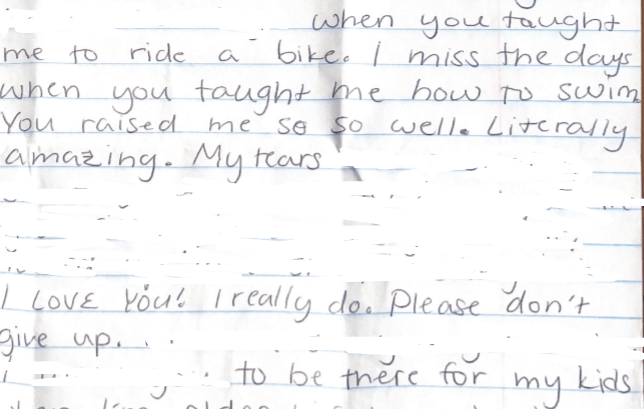 when you taught
me to ride a bike. I miss the days
when you taught me how to swim
You raised me so so well. Literally
amazing. My tears
I LOVE YOU! I really do. Please don't
give up. . .
I to be there for my kids